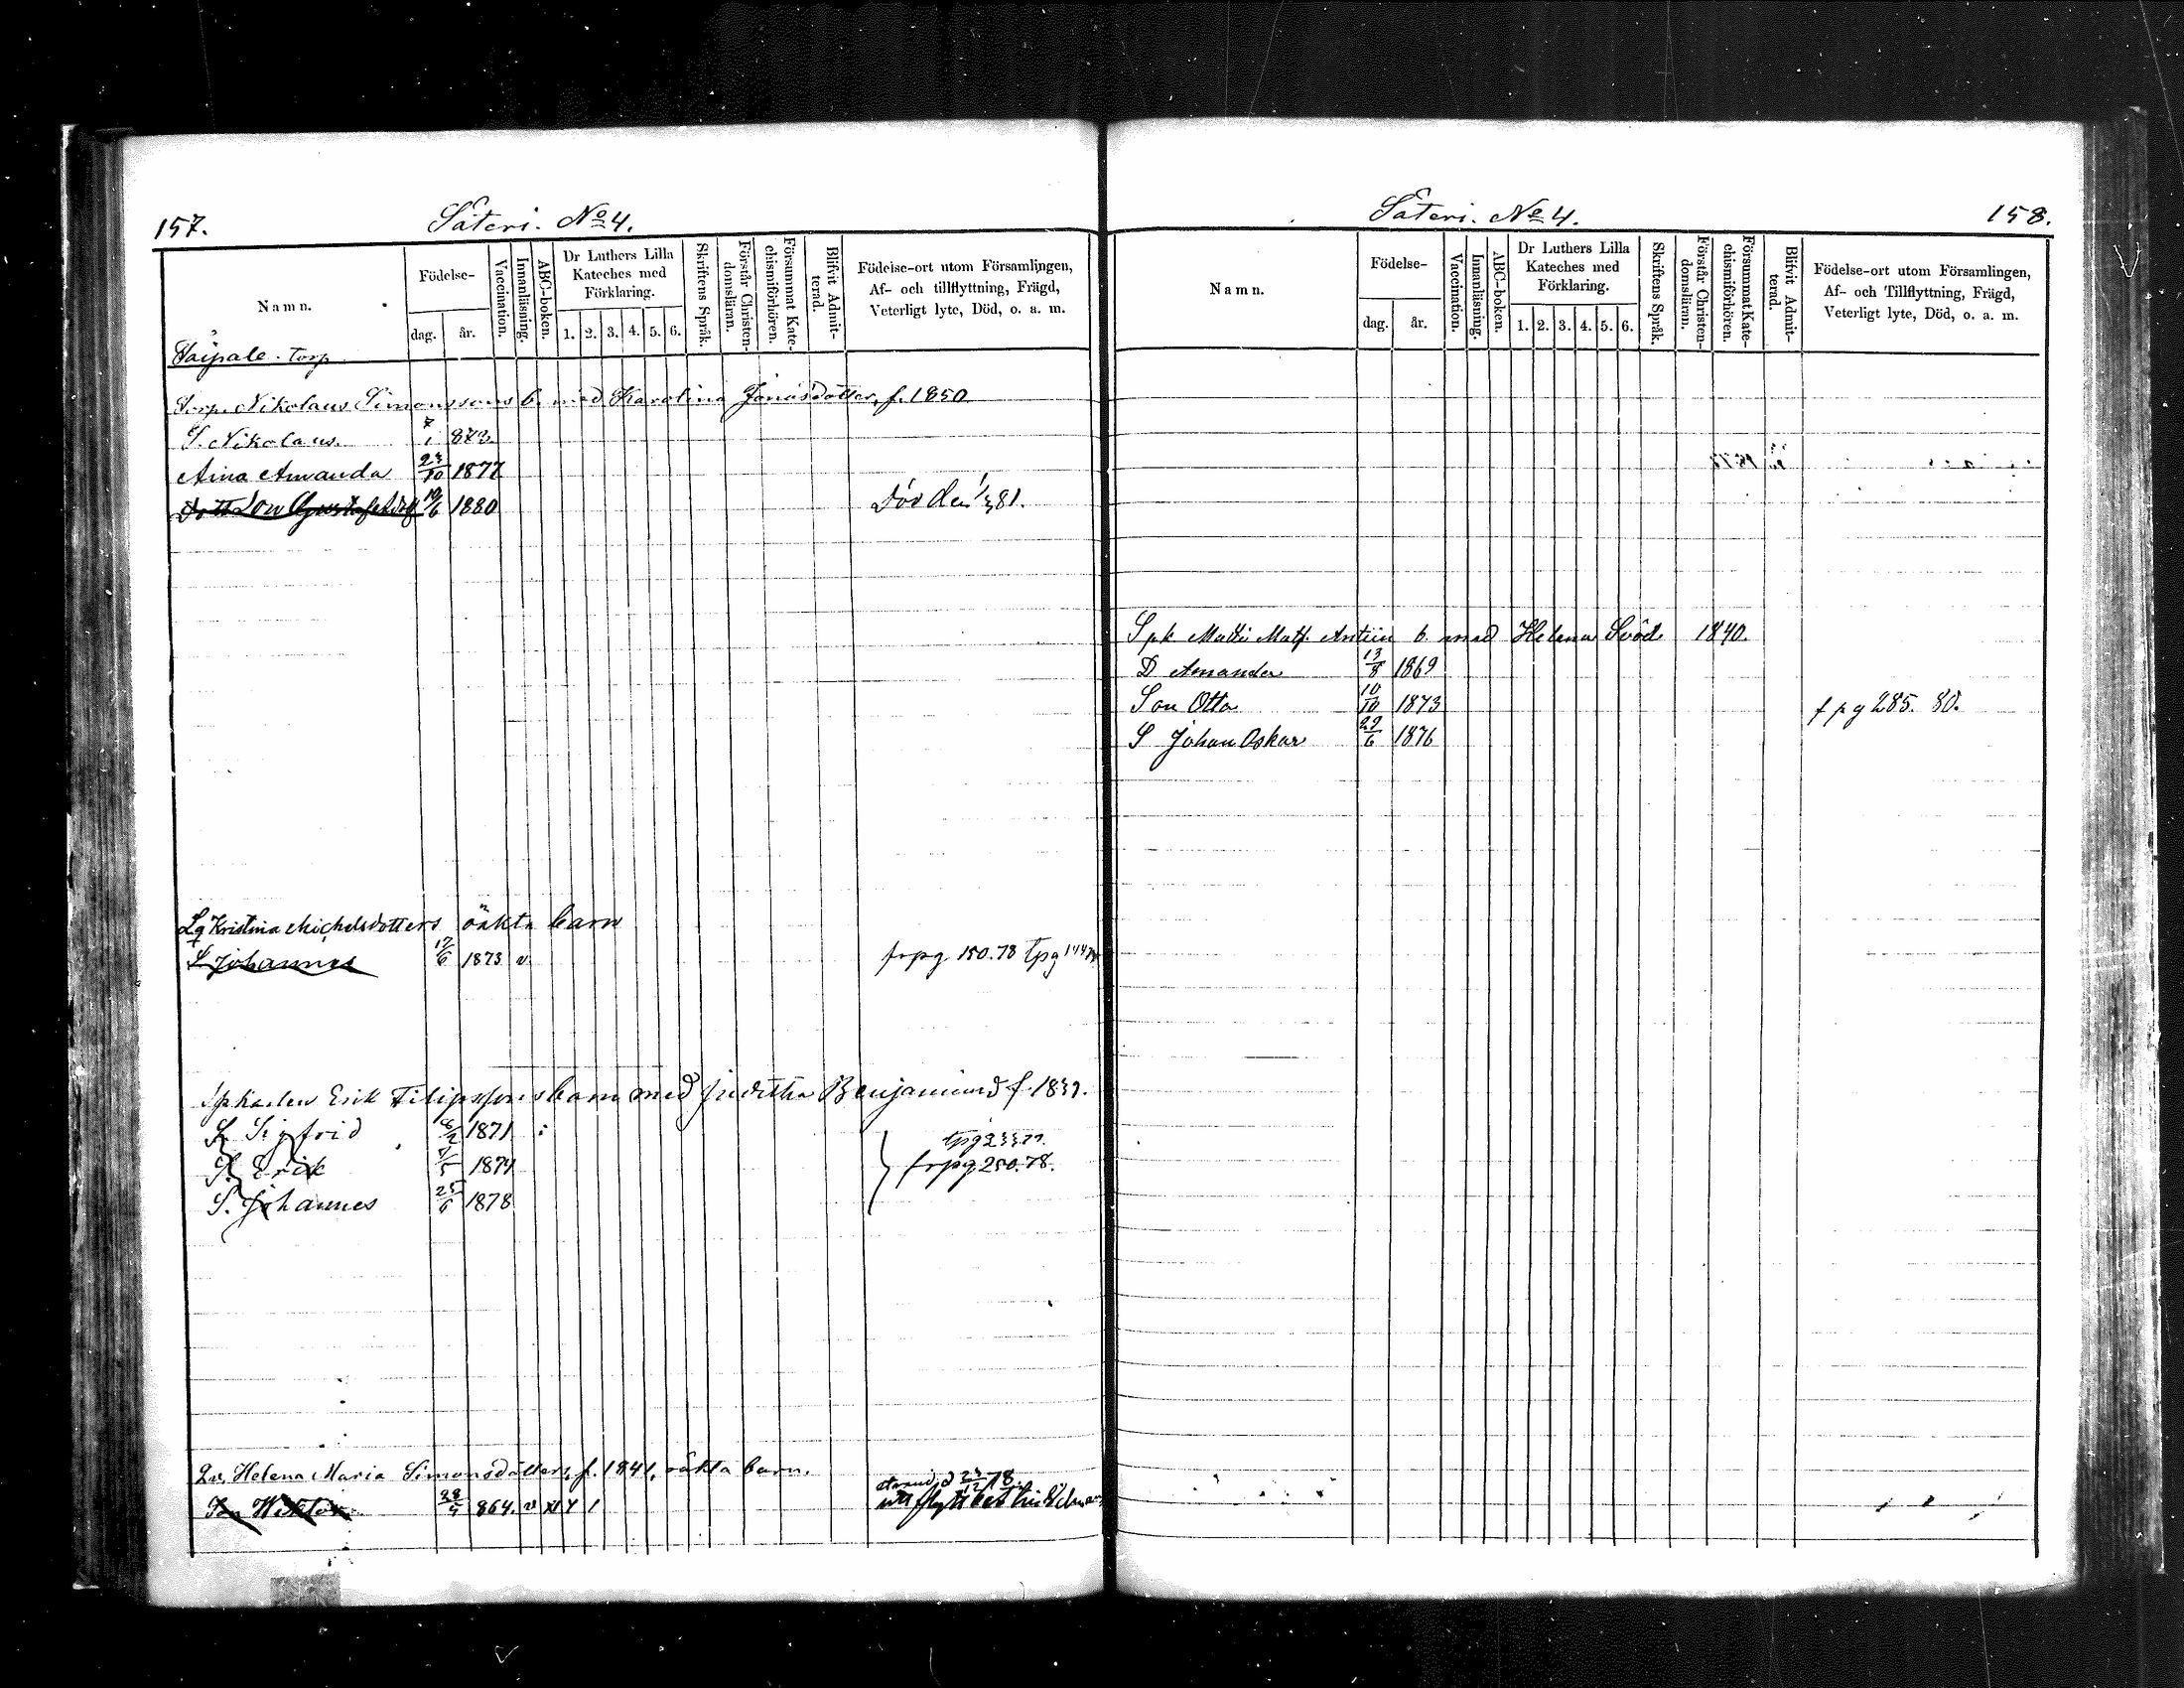 157.
Säteri. No 4.
Namn.
Födelse-
dag.
år.
Vaccination.
Innanläsning.
ABC-boken.
Dr Luthers Lilla
Kateches med
Förklaring.
1. 2. 3. 4. 5. 6.
Skriftens Språk.
Förstår Christen-
domsläran.
Försummat Kate-
chismiförhören.
Blifvit Admit-
terad.
Födelse-ort utom Församlingen,
Af- och tillflyttning, Frägd,
Veterligt lyte, Död, o. a. m.
Saipale. Torp
Torp. Nikolaus Simonssons b. med Karolina Jonasdotter, f. 1850
S. Nikolaus. 7/1 872
Aina Amanda 23/10 1877
19/6 1880 Död den 1/3 81.
Lg Kristina Michelsdotters oäkta barn
S Johannes 17/6 1873 v. frpg 150.78 tpg 144
Erik Filipssons barn med Juditha Benjaminsd f. 1839.
S. Sigfrid 1871 tpg 233
S. Erik 1874 frpg 250.78.
S. Johannes 25/6 1878
Helena Maria Simonsdotters, f. 1841, oäkta barn.
Son Wiktor 28/9 864. v x Y 1
158.
Säteri. No 4.
Namn.
Födelse-
dag.
år.
Vaccination.
Innanläsning.
ABC-boken.
Dr Luthers Lilla
Kateches med
Förklaring.
1. 2. 3. 4. 5. 6.
Skriftens Språk.
Förstår Christen-
domsläran.
Försummat Kate-
chismiförhören.
Blifvit Admit-
terad.
Födelse-ort utom Församlingen,
Af- och Tillflyttning, Frägd,
Veterligt lyte, Död, o. a. m.
Spk Matts Matss. Antiin b. med Helena 1840
D Amanda 13/8 1869
Son Otto 10/10 1873 f pg 285. 80.
S Johan Oskar 29/6 1876